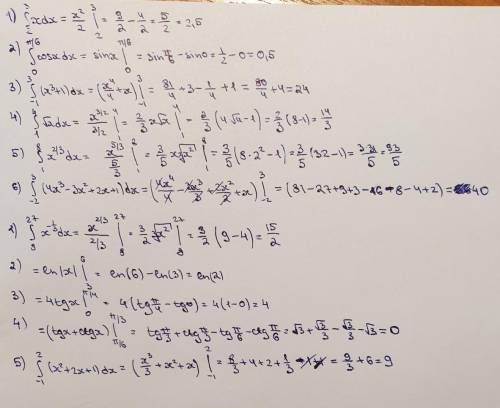 1) ∫₂³ xdx = x²/2 |₂³ = 9/2 - 4/2 = 5/2 = 2,5
2) ∫₀^(π/6) cosxdx = sinx |₀^(π/6) = sin π/6 - sin0 = 1/2 - 0 = 0,5
3) ∫₋₁³ (x³+1)dx = (x⁴/4 + x) |₋₁³ = 81/4 + 3 - 1/4 + 1 = 80/4 + 4 = 24
4) ∫₁⁴ √x dx = x^(3/2)/(3/2) |₁⁴ = 2/3 x√x |₁⁴ = 2/3 (4√4 - 1) = 2/3 (8-1) = 14/3
5) ∫₁⁸ x^(2/3) dx = x^(5/3)/(5/3) |₁⁸ = 3/5 x ∛x² |₁⁸ = 3/5 (8·2² - 1) = 3/5 (32-1) = 3·31/5 = 93/5
6) ∫₋₂³ (4x³ - 3x² + 2x + 1)dx = (4x⁴/4 - 3x³/3 + 2x²/2 + x) |₋₂³ = (81 - 27 + 9 + 3 - 16 - 8 - 4 + 2) = 40
1) ∫₈²⁷ x^(-1/3) dx = x^(2/3)/(2/3) |₈²⁷ = 3/2 ∛x² |₈²⁷ = 3/2 (9-4) = 15/2
2) = ln|x| |₃⁶ = ln(6) - ln(3) = ln(2)
3) = 4tgx |₀^(π/4) = 4(tg π/4 - tg0) = 4(1-0) = 4
4) = (tgx + ctgx) |_(π/6)^(π/3) = tg π/3 + ctg π/3 - tg π/6 - ctg π/6 = √3 + √3/3 - √3/3 - √3 = 0
5) ∫₋₁² (x² + 2x + 1)dx = (x³/3 + x² + x) |₋₁² = 8/3 + 4 + 2 + 1/3 = 9/3 + 6 = 9